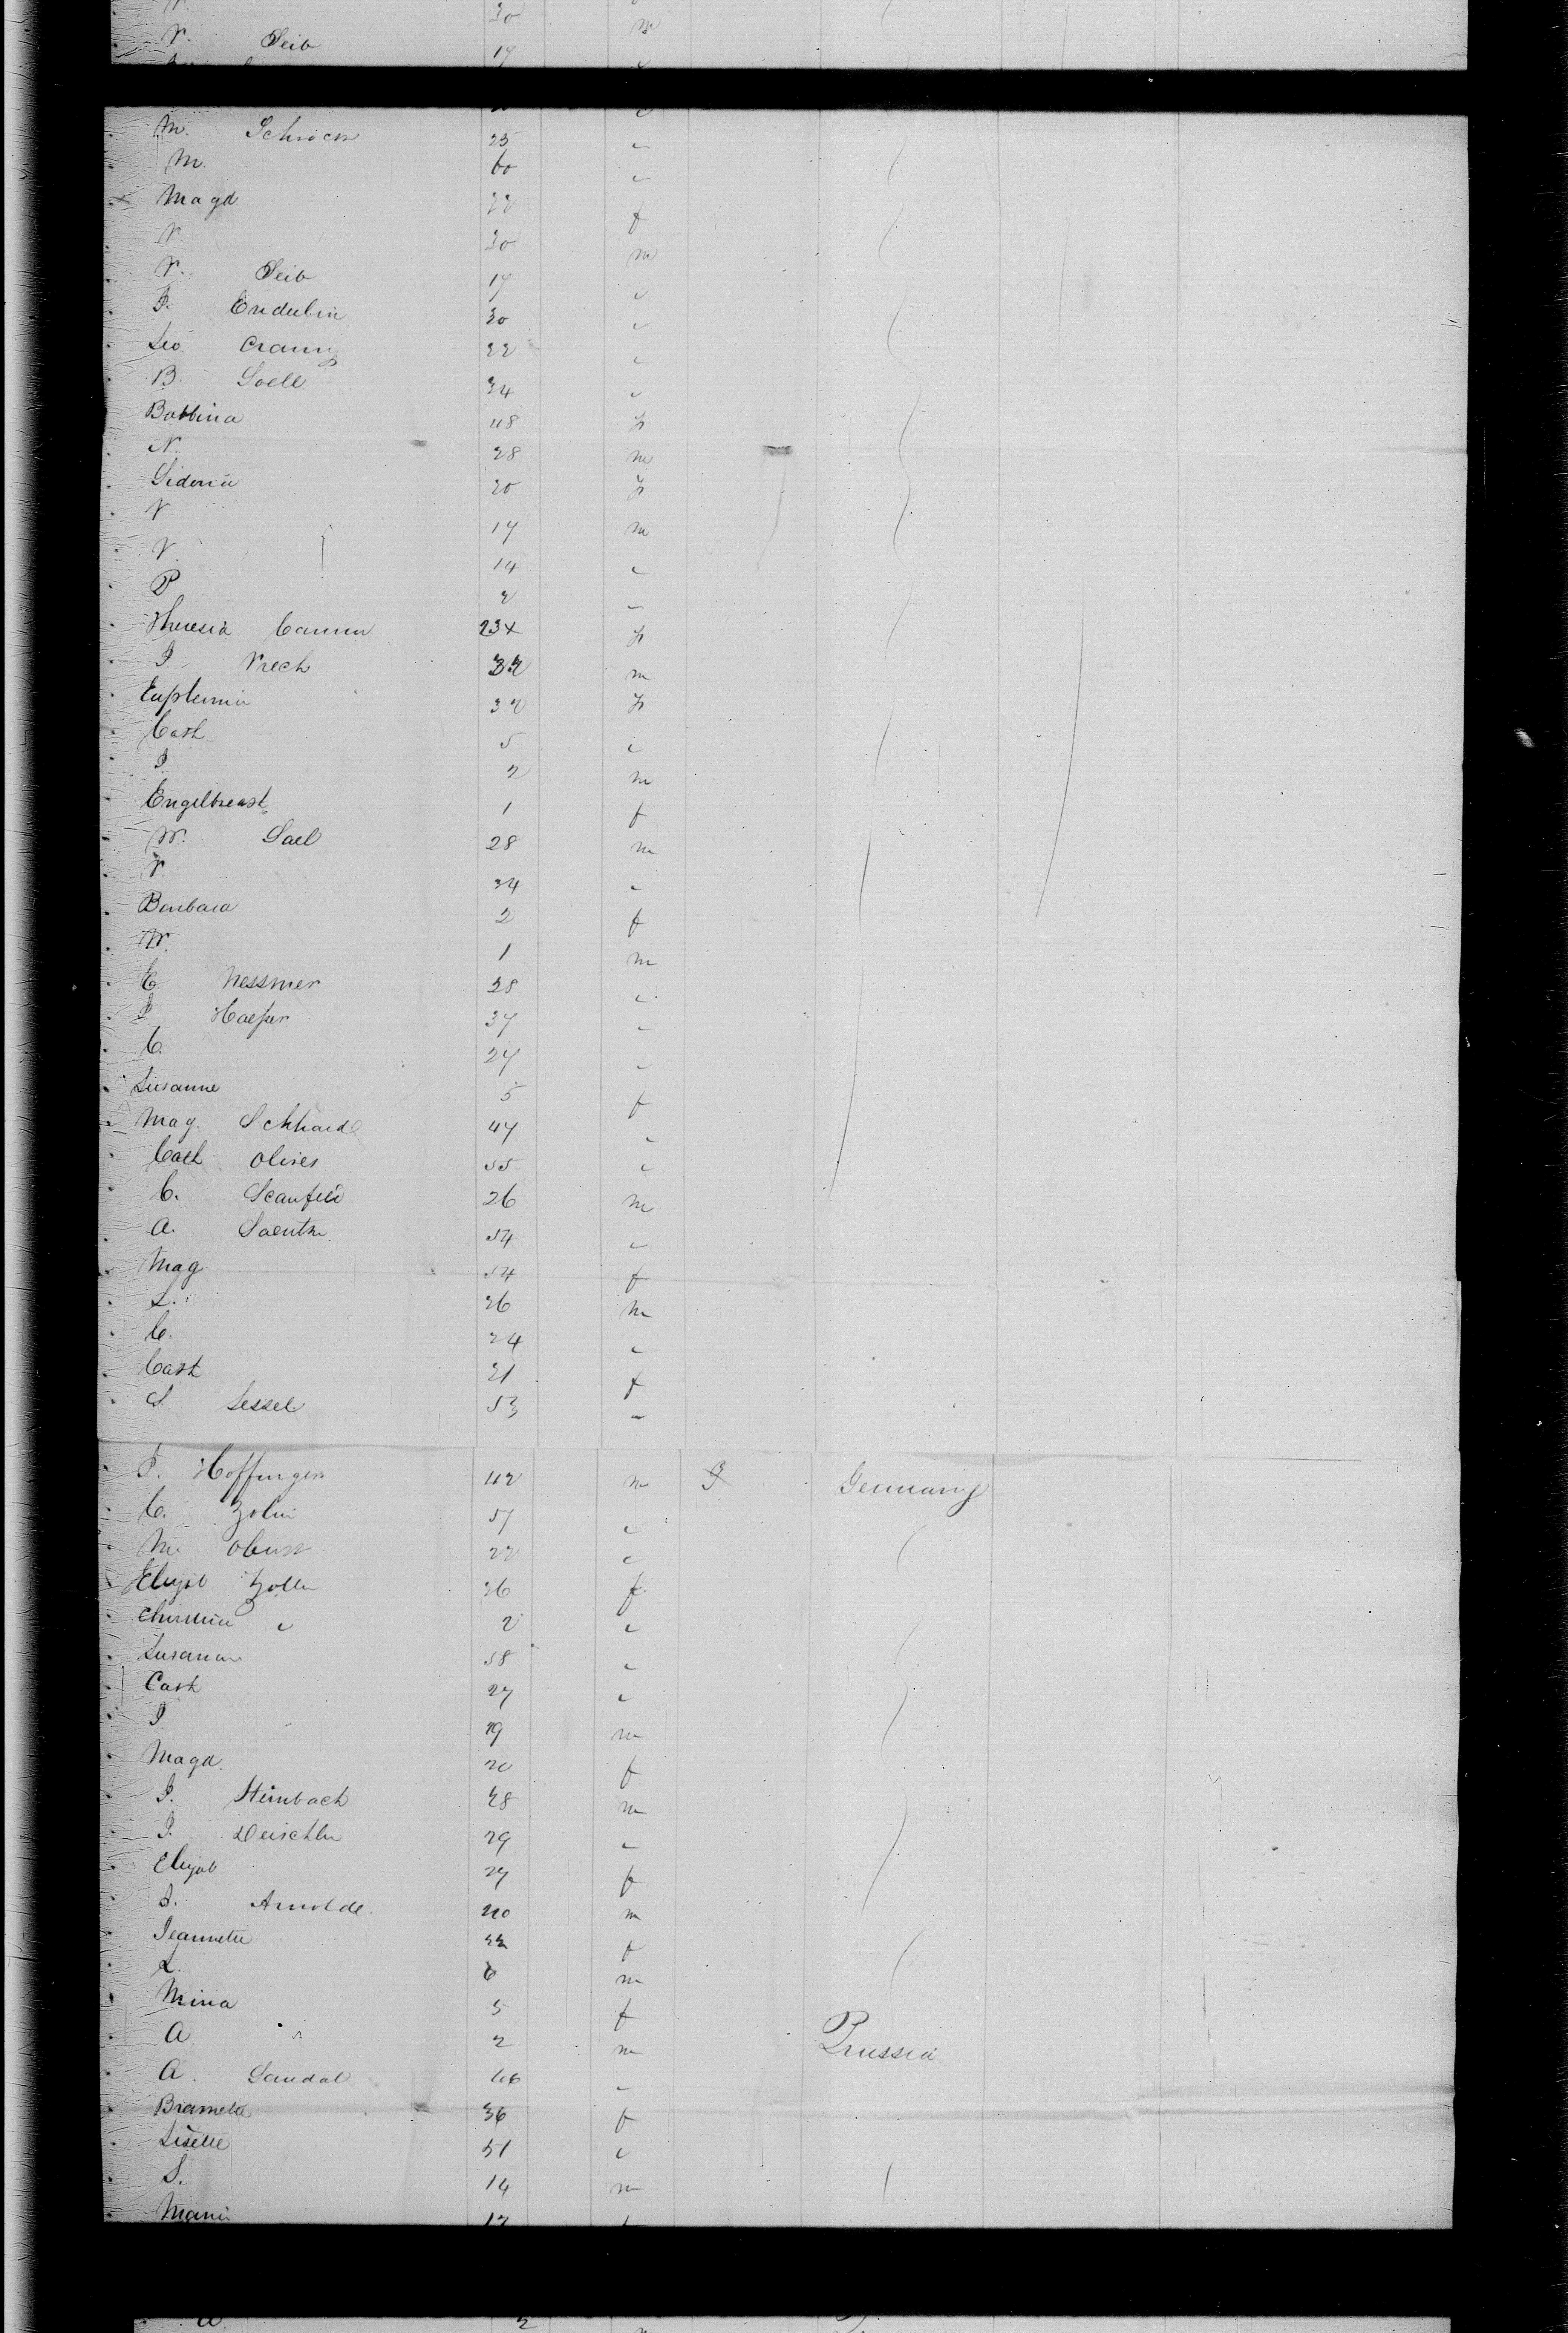 30 m
V. Seib 17
M. Schrock 25 "
M. 60 "
Magd 22 f
V. 30 m
V. Seib 17 "
J. Enderlin 30 "
Leo Crany 22 "
B. Soell 34 "
Babbina 48 f
N. 28 m
Sidonia 20 f
V 17 m
V. 14 "
P 2 "
Theresia 23 f
J Vrech 32 m
Euphemia 32 f
Cath 5 "
J 2 m
Engelbreast 1 f
W. Sael 28 m
V 24 "
Barbara 2 f
W. 1 m
E Messmer 28 "
J Haefer 37 "
C. 27 "
Susanne 5 f
Mag. Schhard 47 "
Cath Olives 55 "
C. Scanfeld 26 m
A. 54 "
Mag 54 f
L. 26 m
C. 24 "
Cath 21 f
S Sessel 53 "
J. Hoffinger 42 m Germany
C. Zolin 57 "
M. 22 "
Elizab Zoller 26 f
Christina " 2 "
Susanna 58 "
Cath 27 "
J 19 m
Magd. 20 f
J. Steinbach 28 m
J. Deischler 29 "
Elizab 27 f
S. Arnolde 40 m
Jeannette f
L. 6 m
Mina 5 f
A " 2 m Prussia
A. Sandal 46 "
36 f
Lisette 51 "
S. 14 m
Marie 17
2